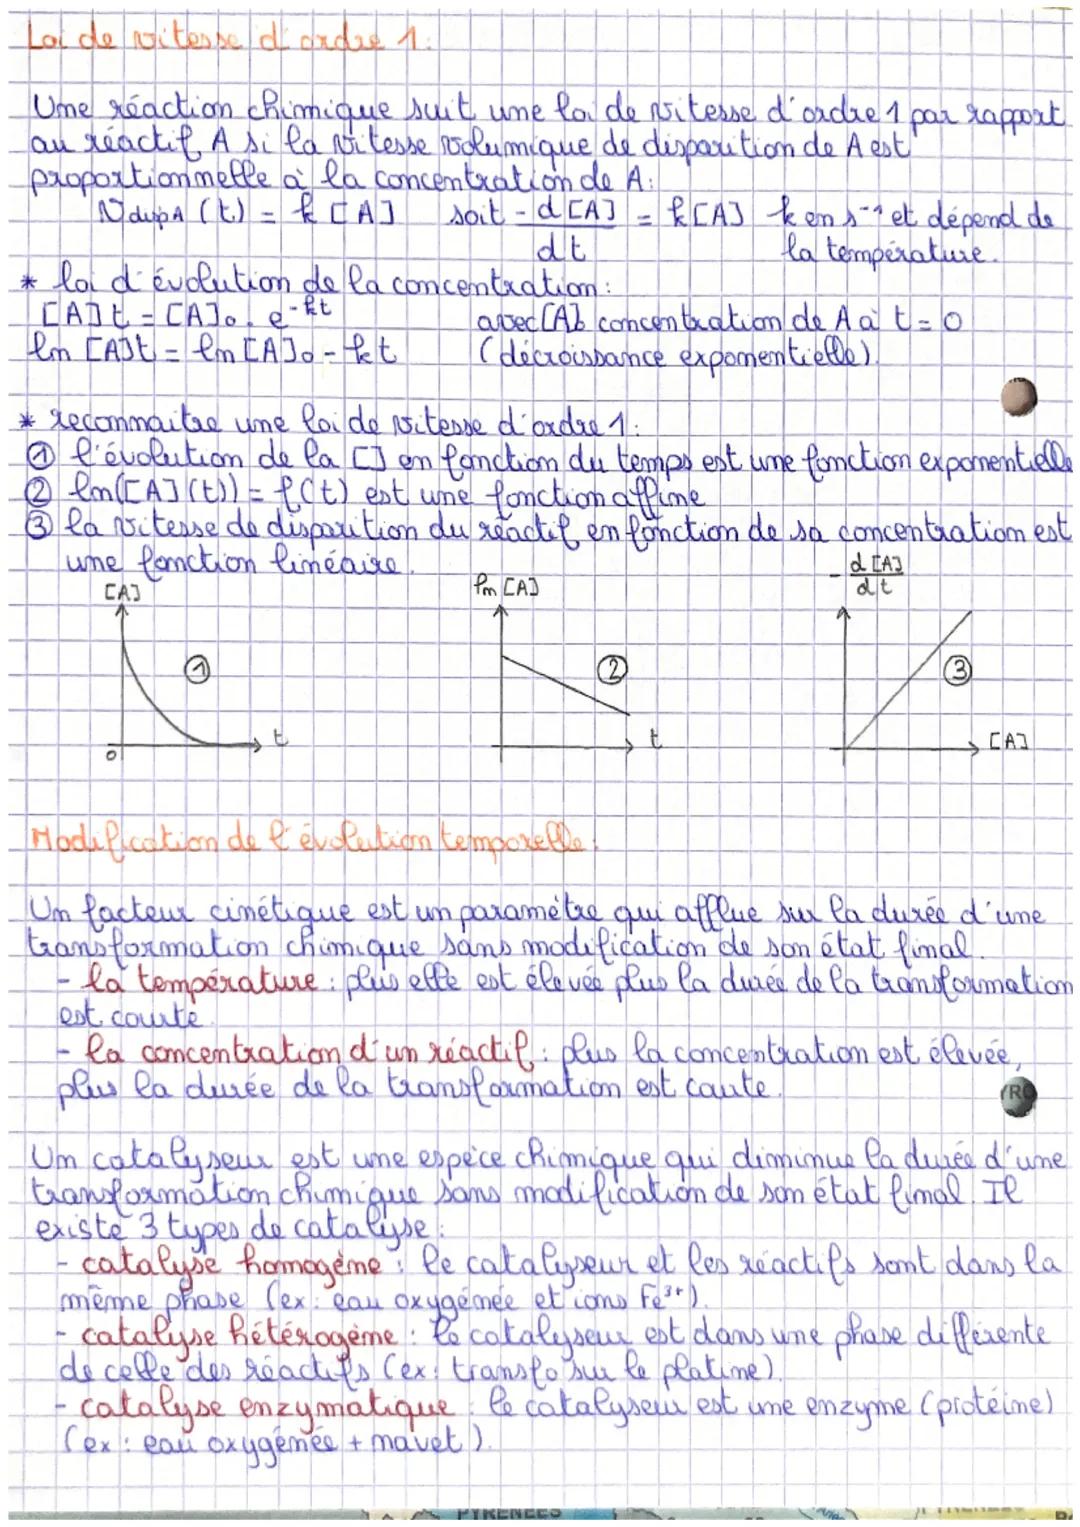 Loi de vitesse d'ordre 1:
Une réaction chimique suit une loi de vitesse d'ordre 1 par rapport
au réactif A si la vitesse volumique de disparition de A est
proportionnelle à la concentration de A:
VdispA (t) = k [A] soit - d[A]/dt = k[A] k en s⁻¹ et dépend de
la température.
* loi d'évolution de la concentration:
[A]t = [A]₀ . e^-kt avec [A]₀ concentration de A à t = 0
ln [A]t = ln [A]₀ - kt (décroissance exponentielle).
* reconnaitre une loi de vitesse d'ordre 1:
① l'évolution de la [] en fonction du temps est une fonction exponentielle
② ln([A](t)) = f(t) est une fonction affine
③ la vitesse de disparition du réactif en fonction de sa concentration est
une fonction linéaire.
[A] ln [A] - d[A]/dt
① ② ③
0 t t [A]
Modification de l'évolution temporelle:
Un facteur cinétique est un paramètre qui afflue sur la durée d'une
transformation chimique sans modification de son état final.
- la température : plus elle est élevée plus la durée de la transformation
est courte.
- la concentration d'un réactif : plus la concentration est élevée,
plus la durée de la transformation est courte.
Un catalyseur est une espèce chimique qui diminue la durée d'une
transformation chimique sans modification de son état final. Il
existe 3 types de catalyse:
- catalyse homogène : le catalyseur et les réactifs sont dans la
même phase (ex: eau oxygénée et ions Fe³⁺).
- catalyse hétérogène : le catalyseur est dans une phase différente
de celle des réactifs (ex: transfo sur le platine).
- catalyse enzymatique : le catalyseur est une enzyme (protéine)
(ex : eau oxygénée + navet).
PYRENEES